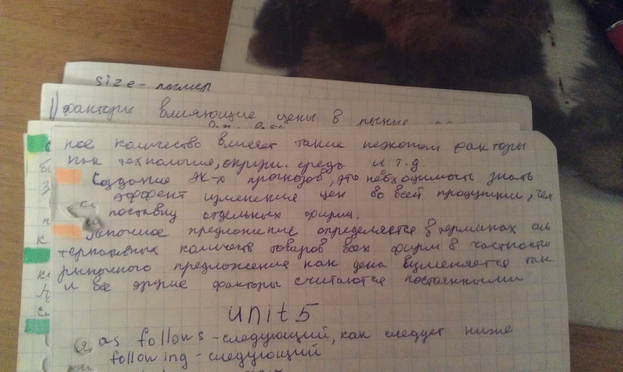 size - размер
1) факторы влияющие цены в рынке
ное количество влияет такие неэконом факторы
как технология, окруж. среда и т.д.
Создание эк-х прогнозов, это необходимость знать
эффект изменения цен во всей продукции, чем
поставку отдельных фирм.
Рыночное предложение определяется в терминах аль
тернативных количеств товаров всех фирм в частности
рыночного предложения как цена изменяется так
и все другие факторы считаются постоянными
unit 5
as follows - следующий, как следует ниже
following - следующий